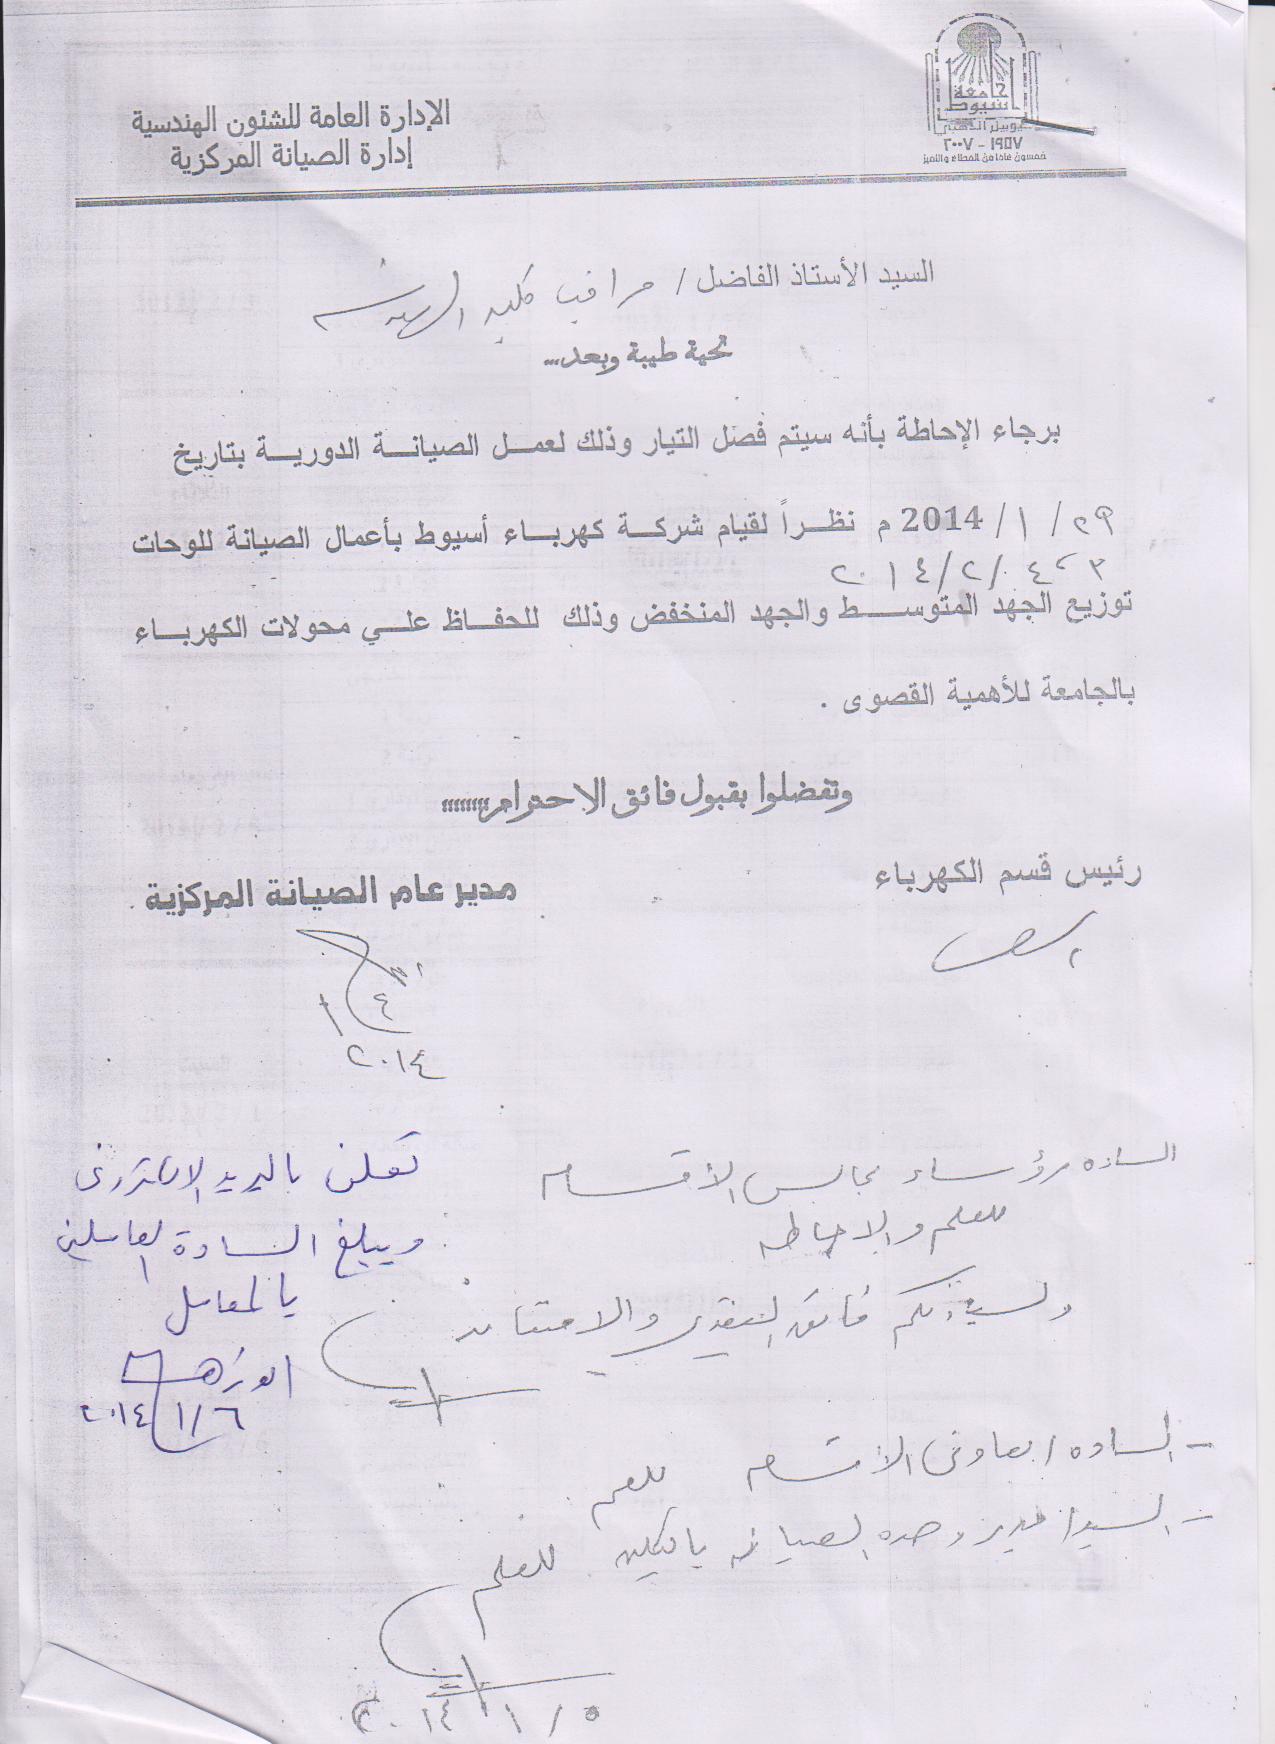 جامعة
أسيوط
اليوبيل الذهبي
١٩٥٧ - ٢٠٠٧
خمسون عاما من العطاء والتميز
الإدارة العامة للشئون الهندسية
إدارة الصيانة المركزية
السيد الأستاذ الفاضل / مراقب كلية الهندسة
تحية طيبة وبعد...
برجاء الإحاطة بأنه سيتم فصل التيار وذلك لعمل الصيانة الدورية بتاريخ
٢٩ / ١ / 2014 م نظراً لقيام شركة كهرباء أسيوط بأعمال الصيانة للوحات
٣ ، ٤ / ٢ / ٢٠١٤
توزيع الجهد المتوسط والجهد المنخفض وذلك للحفاظ علي محولات الكهرباء
بالجامعة للأهمية القصوى .
وتفضلوا بقبول فائق الاحترام،،،،،،،،
رئيس قسم الكهرباء
مدير عام الصيانة المركزية
٤
١
٢٠١٤
الساده رؤساء مجالس الأقسام
للعلم والإحاطه
ولسيادتكم فائق التقدير والامتنان
تعلن بالبريد الالكترونى
ويبلغ السادة العاملين
بالمعامل
٦ / ١ / ٢٠١٤
- الساده / معاونى الأقسام للعلم
- السيد / مدير وحده الصيانه بالكليه للعلم
٥ / ١ / ٢٠١٤